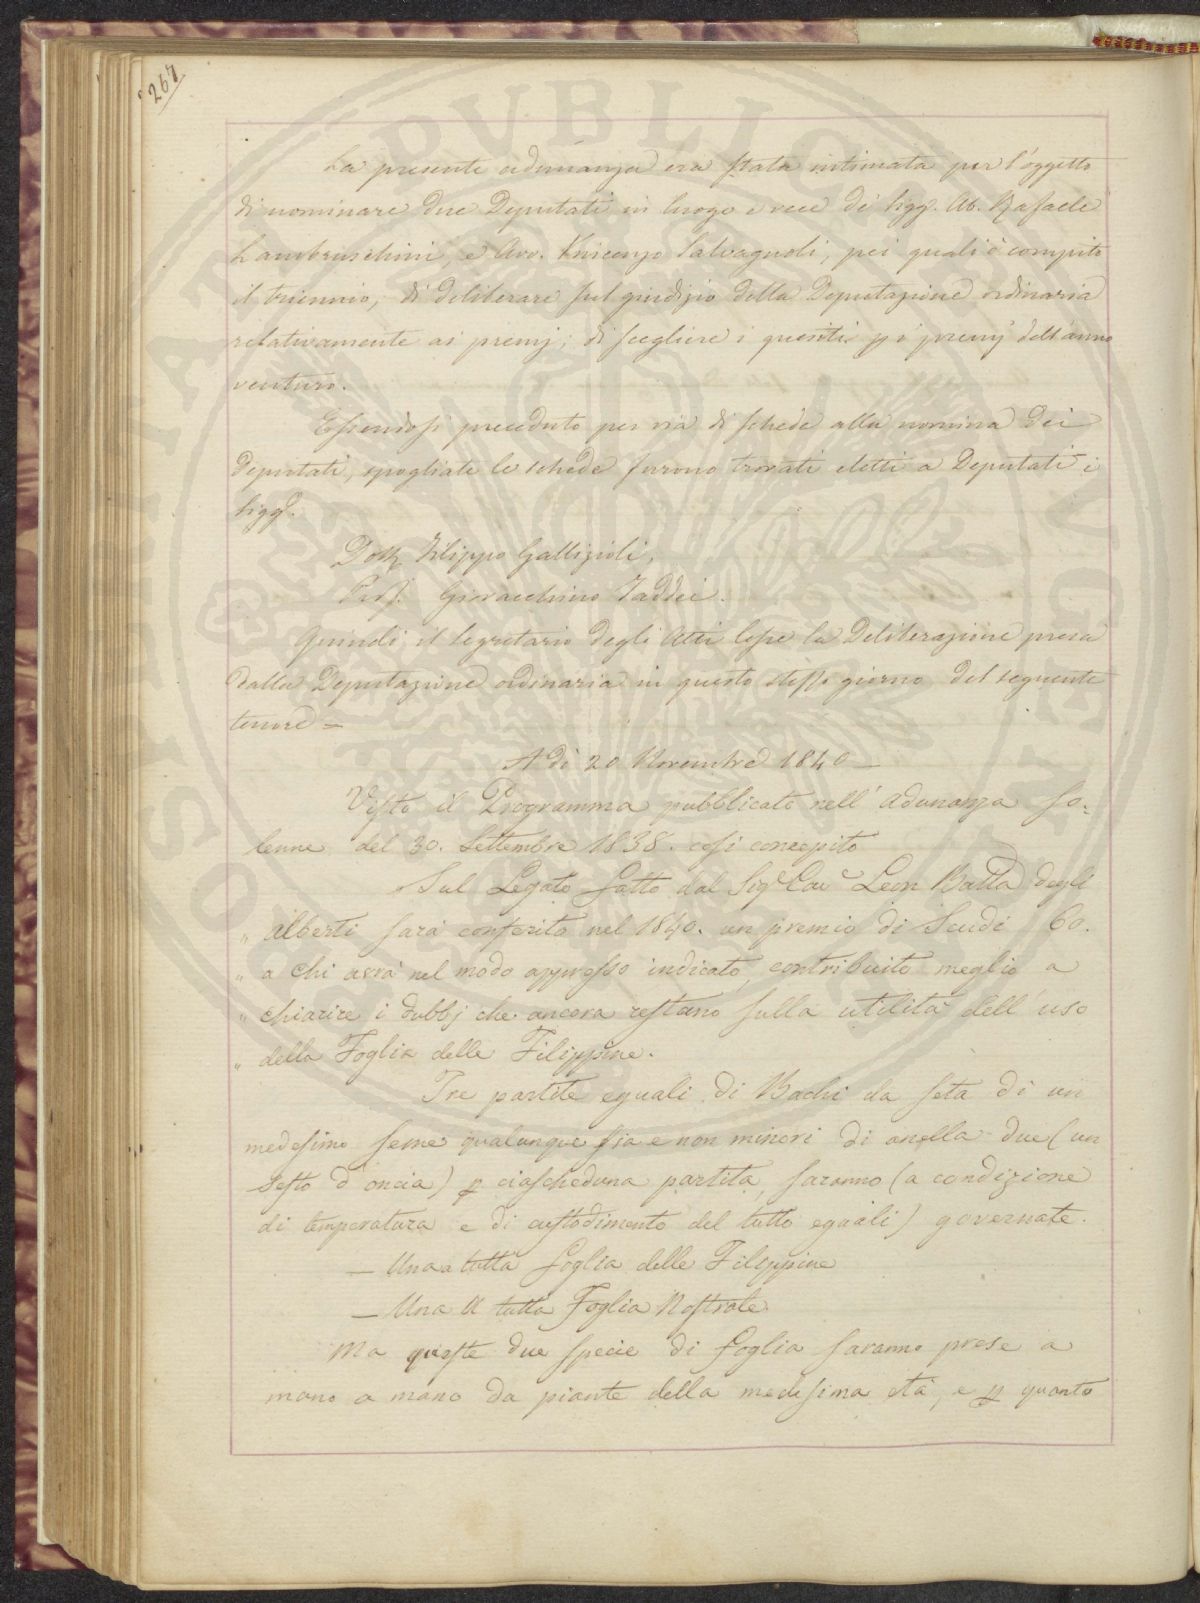 267
La presente adunanza era stata intimata per l'oggetto
di nominare due Deputati in luogo e vece dei Sigg. Ab. Rafaele
Lambruschini, e Avv. Vincenzo Salvagnoli, pei quali è compito
il triennio; di deliberare sul giudizio della Deputazione ordinaria
relativamente ai premj; di scegliere i quesiti p i premj dell'anno
venturo.
Essendosi proceduto per via di schede alla nomina dei
Deputati, spogliate le schede furono trovati eletti a Deputati i
Sigg.
Dott. Filippo Gallizioli,
Prof. Giovacchino Taddei.
Quindi il Segretario degli Atti lesse la Deliberazione presa
dalla Deputazione ordinaria in questo stesso giorno del seguente
tenore =
A dì 20 Novembre 1840 —
Visto il Programma pubblicato nell'adunanza so-
lenne del 30. Settembre 1838. così concepito
Sul Legato fatto dal Sig.e Cav.e Leon Batta degli
" Alberti sarà conferito nel 1840. un premio di Scudi 60.
" a chi avrà nel modo appresso indicato, contribuito meglio a
" chiarire i dubbj che ancora restano sulla utilità dell'uso
" della Foglia delle Filippine.
Tre partite eguali di Bachi da seta di un
medesimo seme qualunque sia e non minori di anella due (un
sesto d'oncia) p ciascheduna partita, saranno (a condizione
di temperatura e di custodimento del tutto eguali) governate.
— Una a tutta foglia delle Filippine
— Una a tutta Foglia Nostrale.
Ma queste due specie di foglia saranno prese a
mano a mano da piante della medesima età, e p quanto